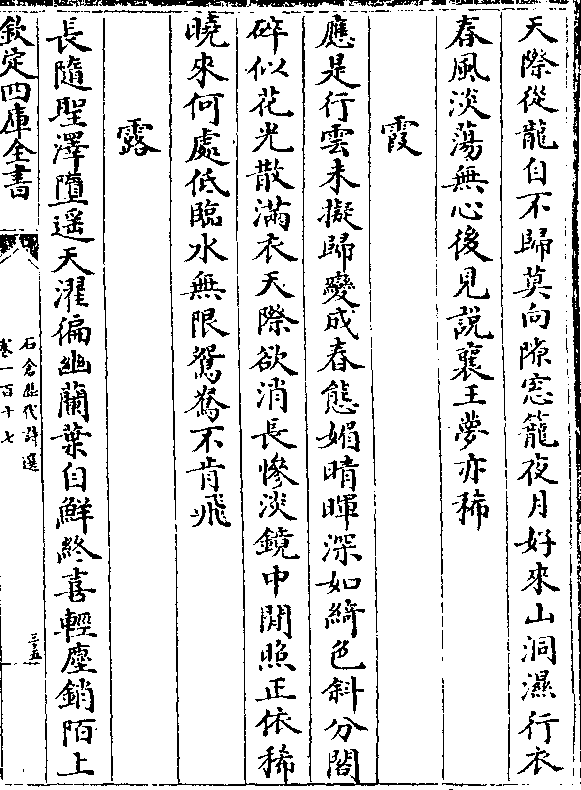 天際從龍自不歸莫向隙窓籠夜月好來山洞濕行衣
春風淡蕩無心後見說襄王夢亦稀
霞
應是行雲未擬歸變成春態媚晴暉深如綺色斜分閣
碎似花光散滿衣天際欲消長慘淡鏡中閒照正依稀
曉來何處低臨水無限鴛鴦不肯飛
露
長隨聖澤墮遥天濯徧幽蘭葉自鮮終喜輕塵銷陌上
欽定四庫全書
石倉歴代詩選
卷一百十七
三五